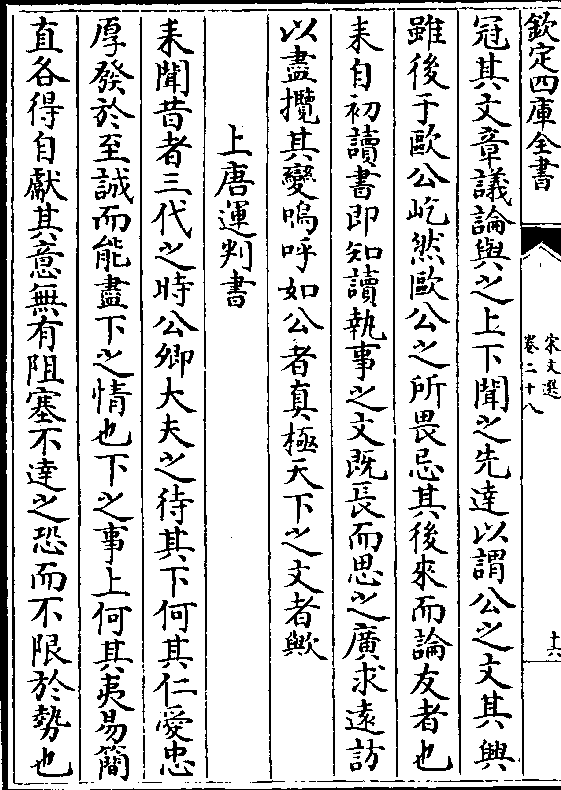 欽定四庫全書
宋文選
卷二十八
十六
冠其文章議論與之上下聞之先達以謂公之文其興
雖後于歐公屹然歐公之所畏忌其後來而論友者也
耒自初讀書即知讀執事之文既長而思之廣求遠訪
以盡攬其變嗚呼如公者真極天下之文者歟
上唐運判書
耒聞昔者三代之時公卿大夫之待其下何其仁愛忠
厚發於至誠而能盡下之情也下之事上何其夷易簡
直各得自獻其意無有阻塞不達之恐而不限於勢也